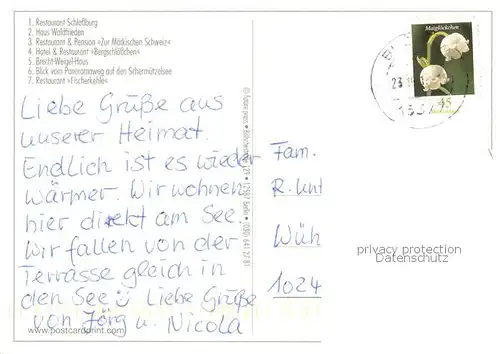 1. Restaurant Schloßburg
2. Haus Waldfrieden
3. Restaurant & Pension »Zur Märkischen Schweiz«
4. Hotel & Restaurant »Bergschlößchen«
5. Brecht-Weigel-Haus
6. Blick vom Panoramaweg auf den Schermützelsee
7. Restaurant »Fischerkehle«
Liebe Grüße aus
unserer Heimat.
Endlich ist es wieder
wärmer. Wir wohnen
hier direkt am See.
Wir fallen von der
Terrasse gleich in
den See Liebe Grüße
von Jörg u. Nicola
www.postcardprint.com
12587 Berlin • (030) 641 27 81
Maiglöckchen
45
23
Fam.
R. Unt
Wüh
1024
privacy protection
Datenschutz